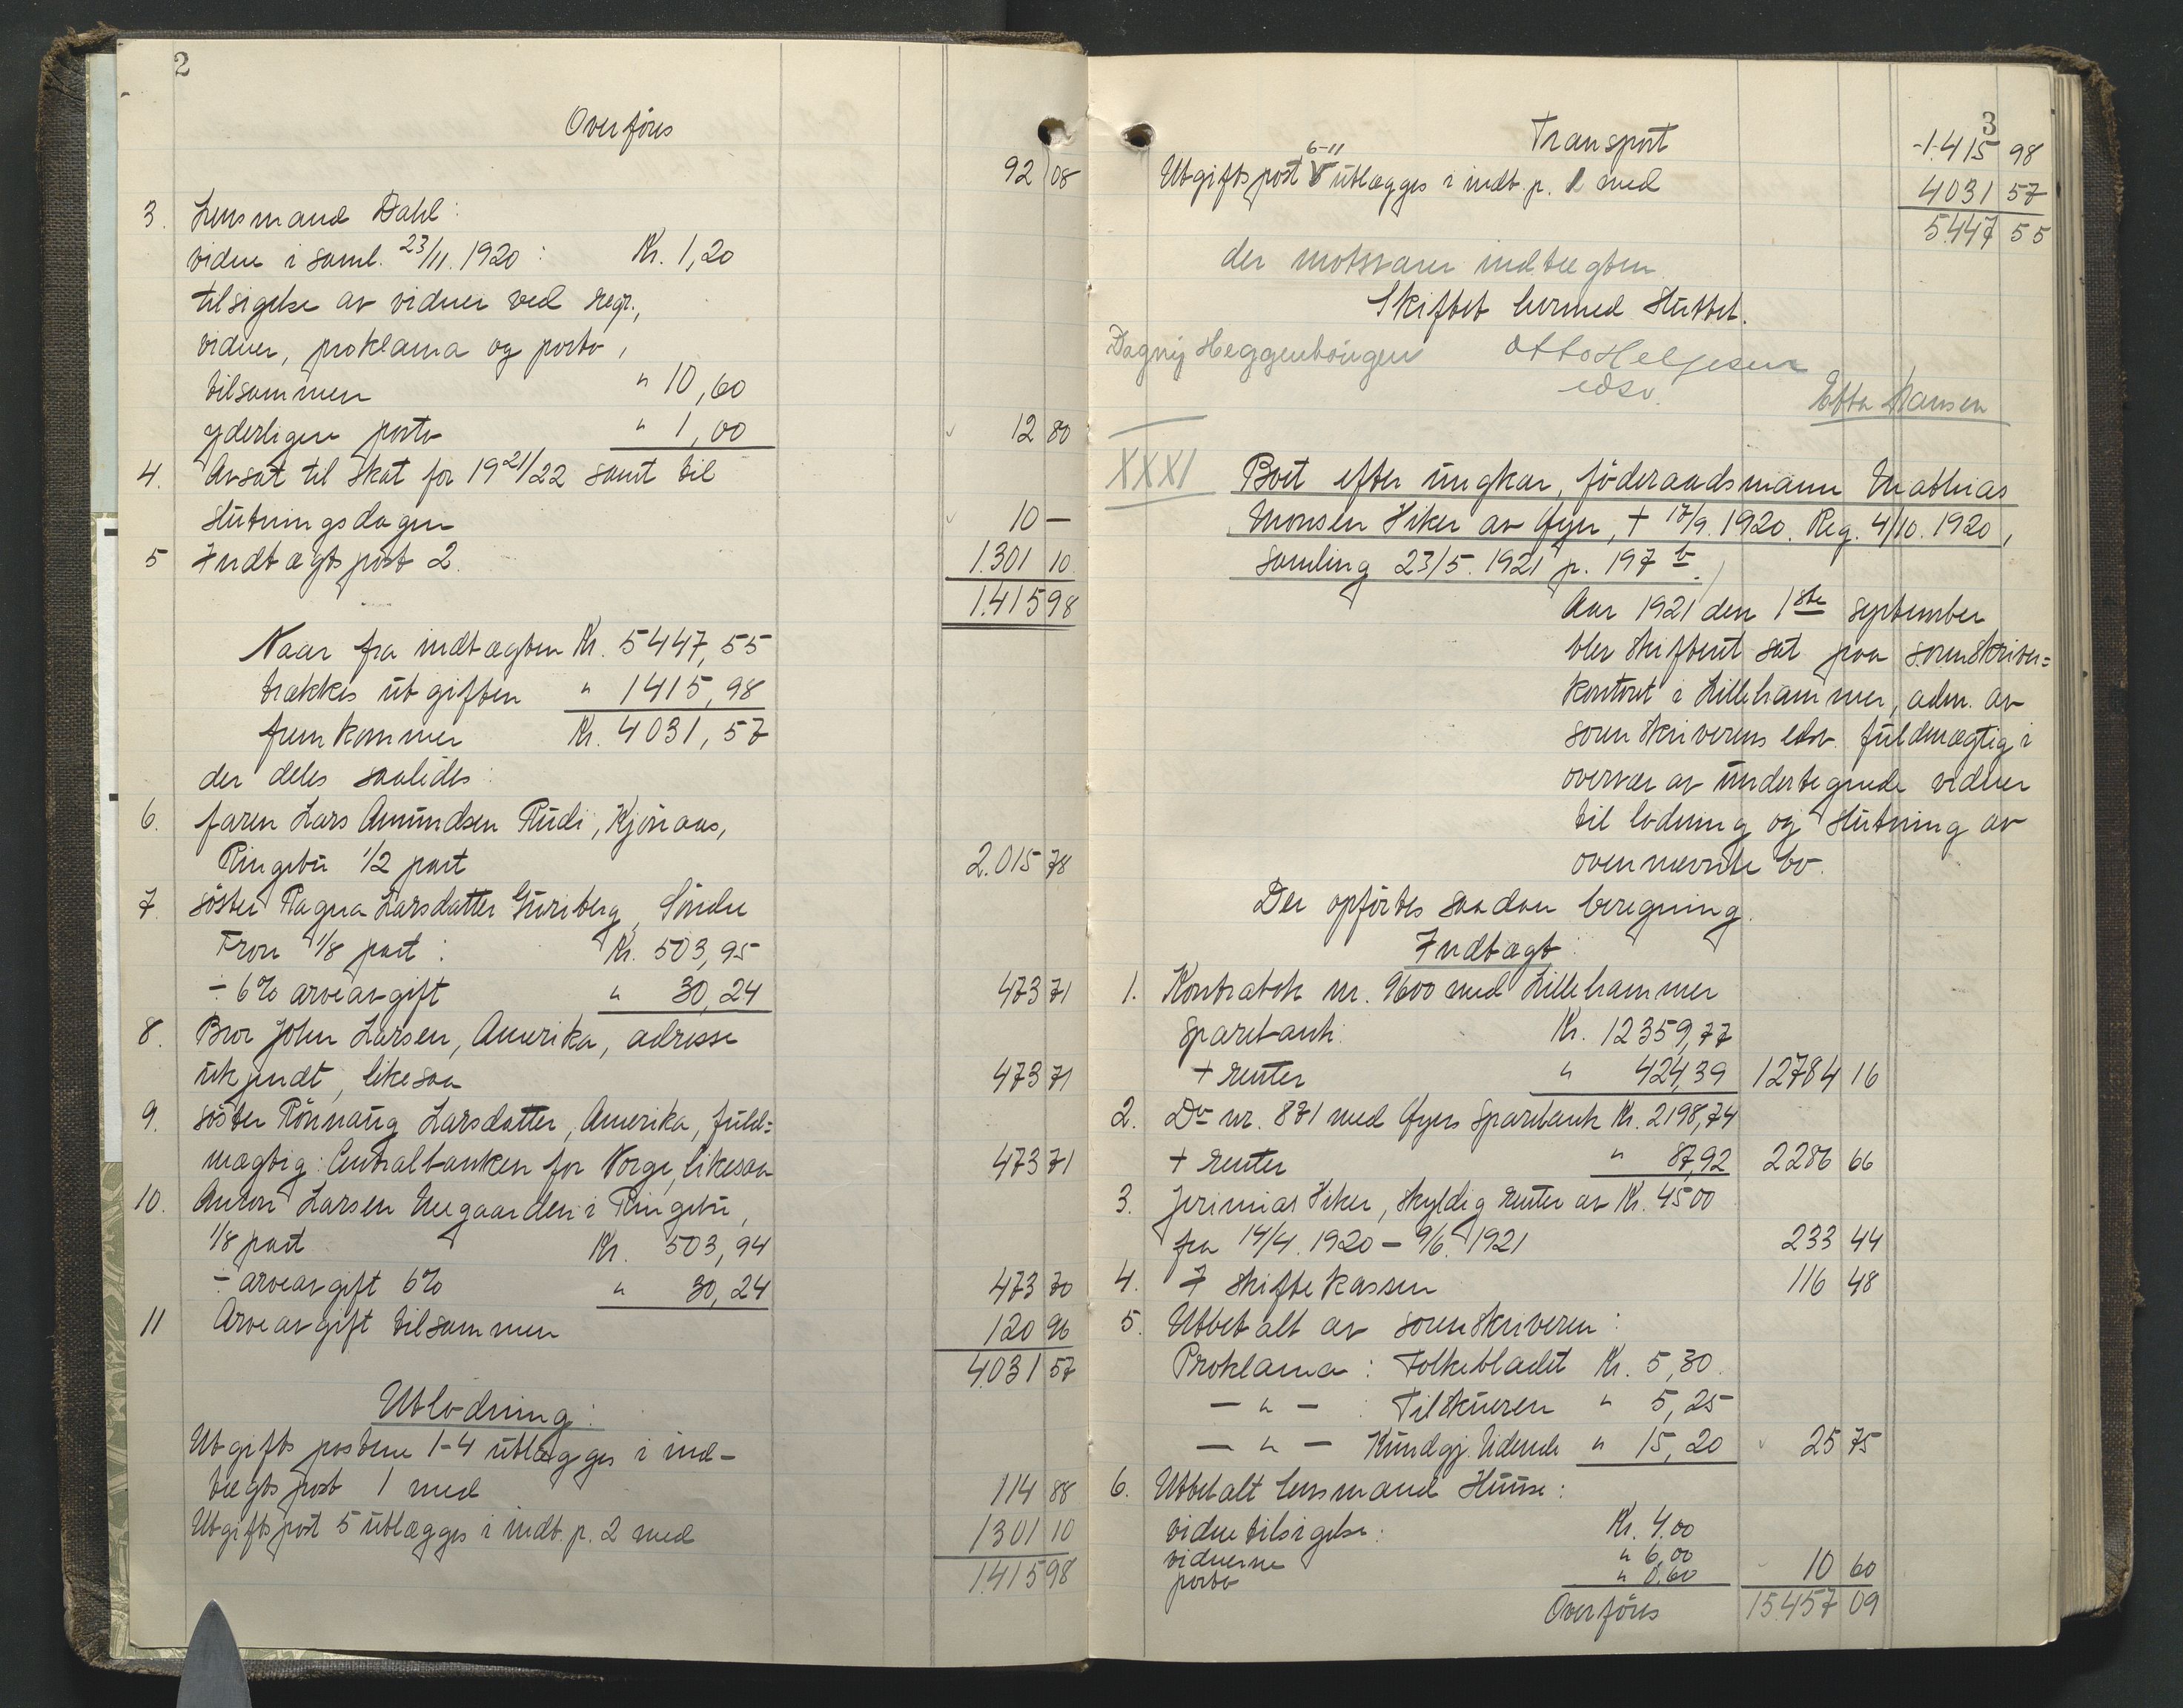 2
Overföres
92 08
3. Lensmand Dahl:
vidne i saml. 23/11. 1920: Kr. 1,20
tilsigelse av vidner ved regr.,
vidner, proklama og porto,
tilsammen " 10,60
yderligere porto " 1,00 12 80
4. Avsat til skat for 1921/22 samt til
slutningsdagen 10 —
5 Indtægtspost 2. 1.301 10
1.415 98
Naar fra indtægten Kr. 5447,55
trækkes utgiften " 1415,98
fremkommer Kr. 4031,57
der deles saaledes:
6. faren Lars Amundsen Rudi, Kjönaas,
Ringebu 1/2 part 2.015 78
7. söster Ragna Larsdatter Guriberg, Söndre
Fron 1/8 part: Kr. 503,95
÷ 6% arveavgift " 30,24 473 71
8. Bror John Larsen, Amerika, adresse
ukjendt, likesaa 473 71
9. söster Rönnaug Larsdatter, Amerika, fuld=
mægtig: Centralbanken for Norge, likesaa 473 71
10. Anton Larsen Nregaarden i Ringebu,
1/8 part Kr. 503,94
÷ arveavgift 6% " 30,24 473 70
11 Arveavgift tilsammen 120 96
4.031 57
Utlodning:
Utgiftspostene 1-4 utlægges i ind-
tægtspost 1 med 114 88
Utgiftspost 5 utlægges i indt. p. 2 med 1301 10
1.415 98
3
Transport 1.415 98
Utgiftspost 6-11 utlægges i indt. p. 1 med 4031 57
5.447 55
der motsvarer indtægten.
Skiftet hermed sluttet.
Dagny Heggenhougen Otto Helgesen
edsv. Ebba Hansen
XXXI Boet efter ungkar, föderaadsmann Mathias
Monsen Hiker av Øyer, † 17/9. 1920. Reg. 4/10. 1920,
samling 23/5. 1921 p. 197 b.
Aar 1921 den 1ste september
blev skifteret sat paa sorenskriver=
kontoret i Lillehammer, adm. av
sorenskriverens edsv. fuldmægtig i
overvær av undertegnede vidner
til lodning og slutning av
ovennævnte bo.
Der opförtes saadan beregning.
Indtægt:
1. Kontrabok nr. 9600 med Lillehammer
Sparebank: Kr. 12359,77
+ renter " 424,39 12784 16
2. Do nr. 871 med Øyer Sparebank Kr. 2198,74
+ renter " 87,92 2286 66
3. Jerimias Hiker, skyldig renter av Kr. 4500
fra 14/4. 1920 – 9/6. 1921 233 44
4. I skiftekassen 116 48
5. Utbetalt av sorenskriveren:
Proklama: Folkebladet Kr. 5,30.
— " — : Tilskueren " 5,25
— " — Kundgj. tidende " 15,20 25 75
6. Utbetalt lensmand Hunse:
vidnetilsigelse: Kr. 4.00
vidnerne " 6,00
porto " 0.60 10 60
Overföres 15.457 09